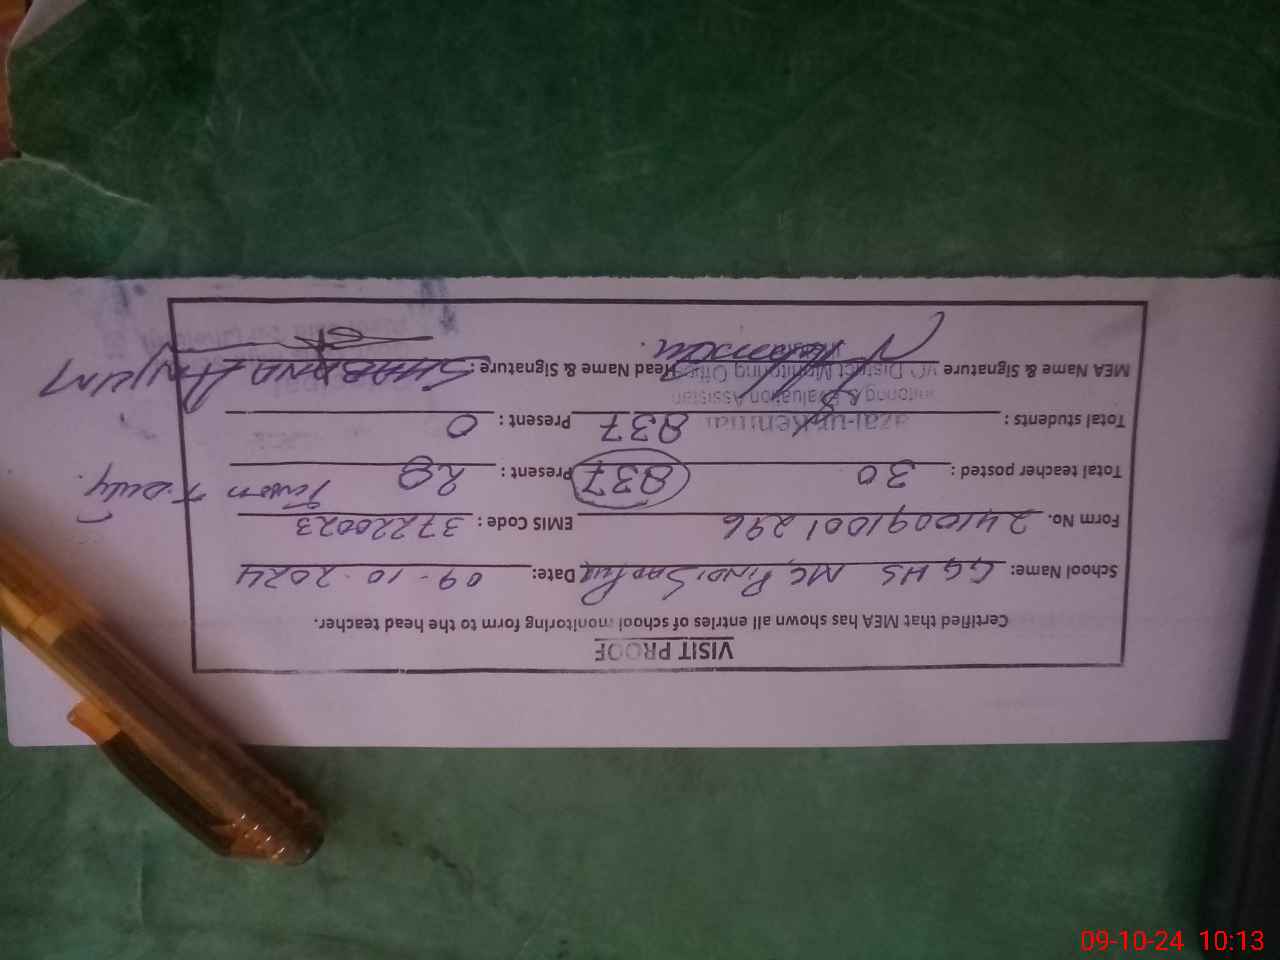 VISIT PROOF
Certified that MEA has shown all entries of school monitoring form to the head teacher.
School Name: GGHS MC, PINDI Date: 09-10-2024
Form No. 2410091001296 EMIS Code: 37220023
Total teacher posted: 30 837 Present: 28
Total students: 837 Present: 0
MEA Name & Signature Head Name & Signature: SHABANA ANJUM
District Monitoring Office
& Evaluation Assistant
09-10-24 10:13